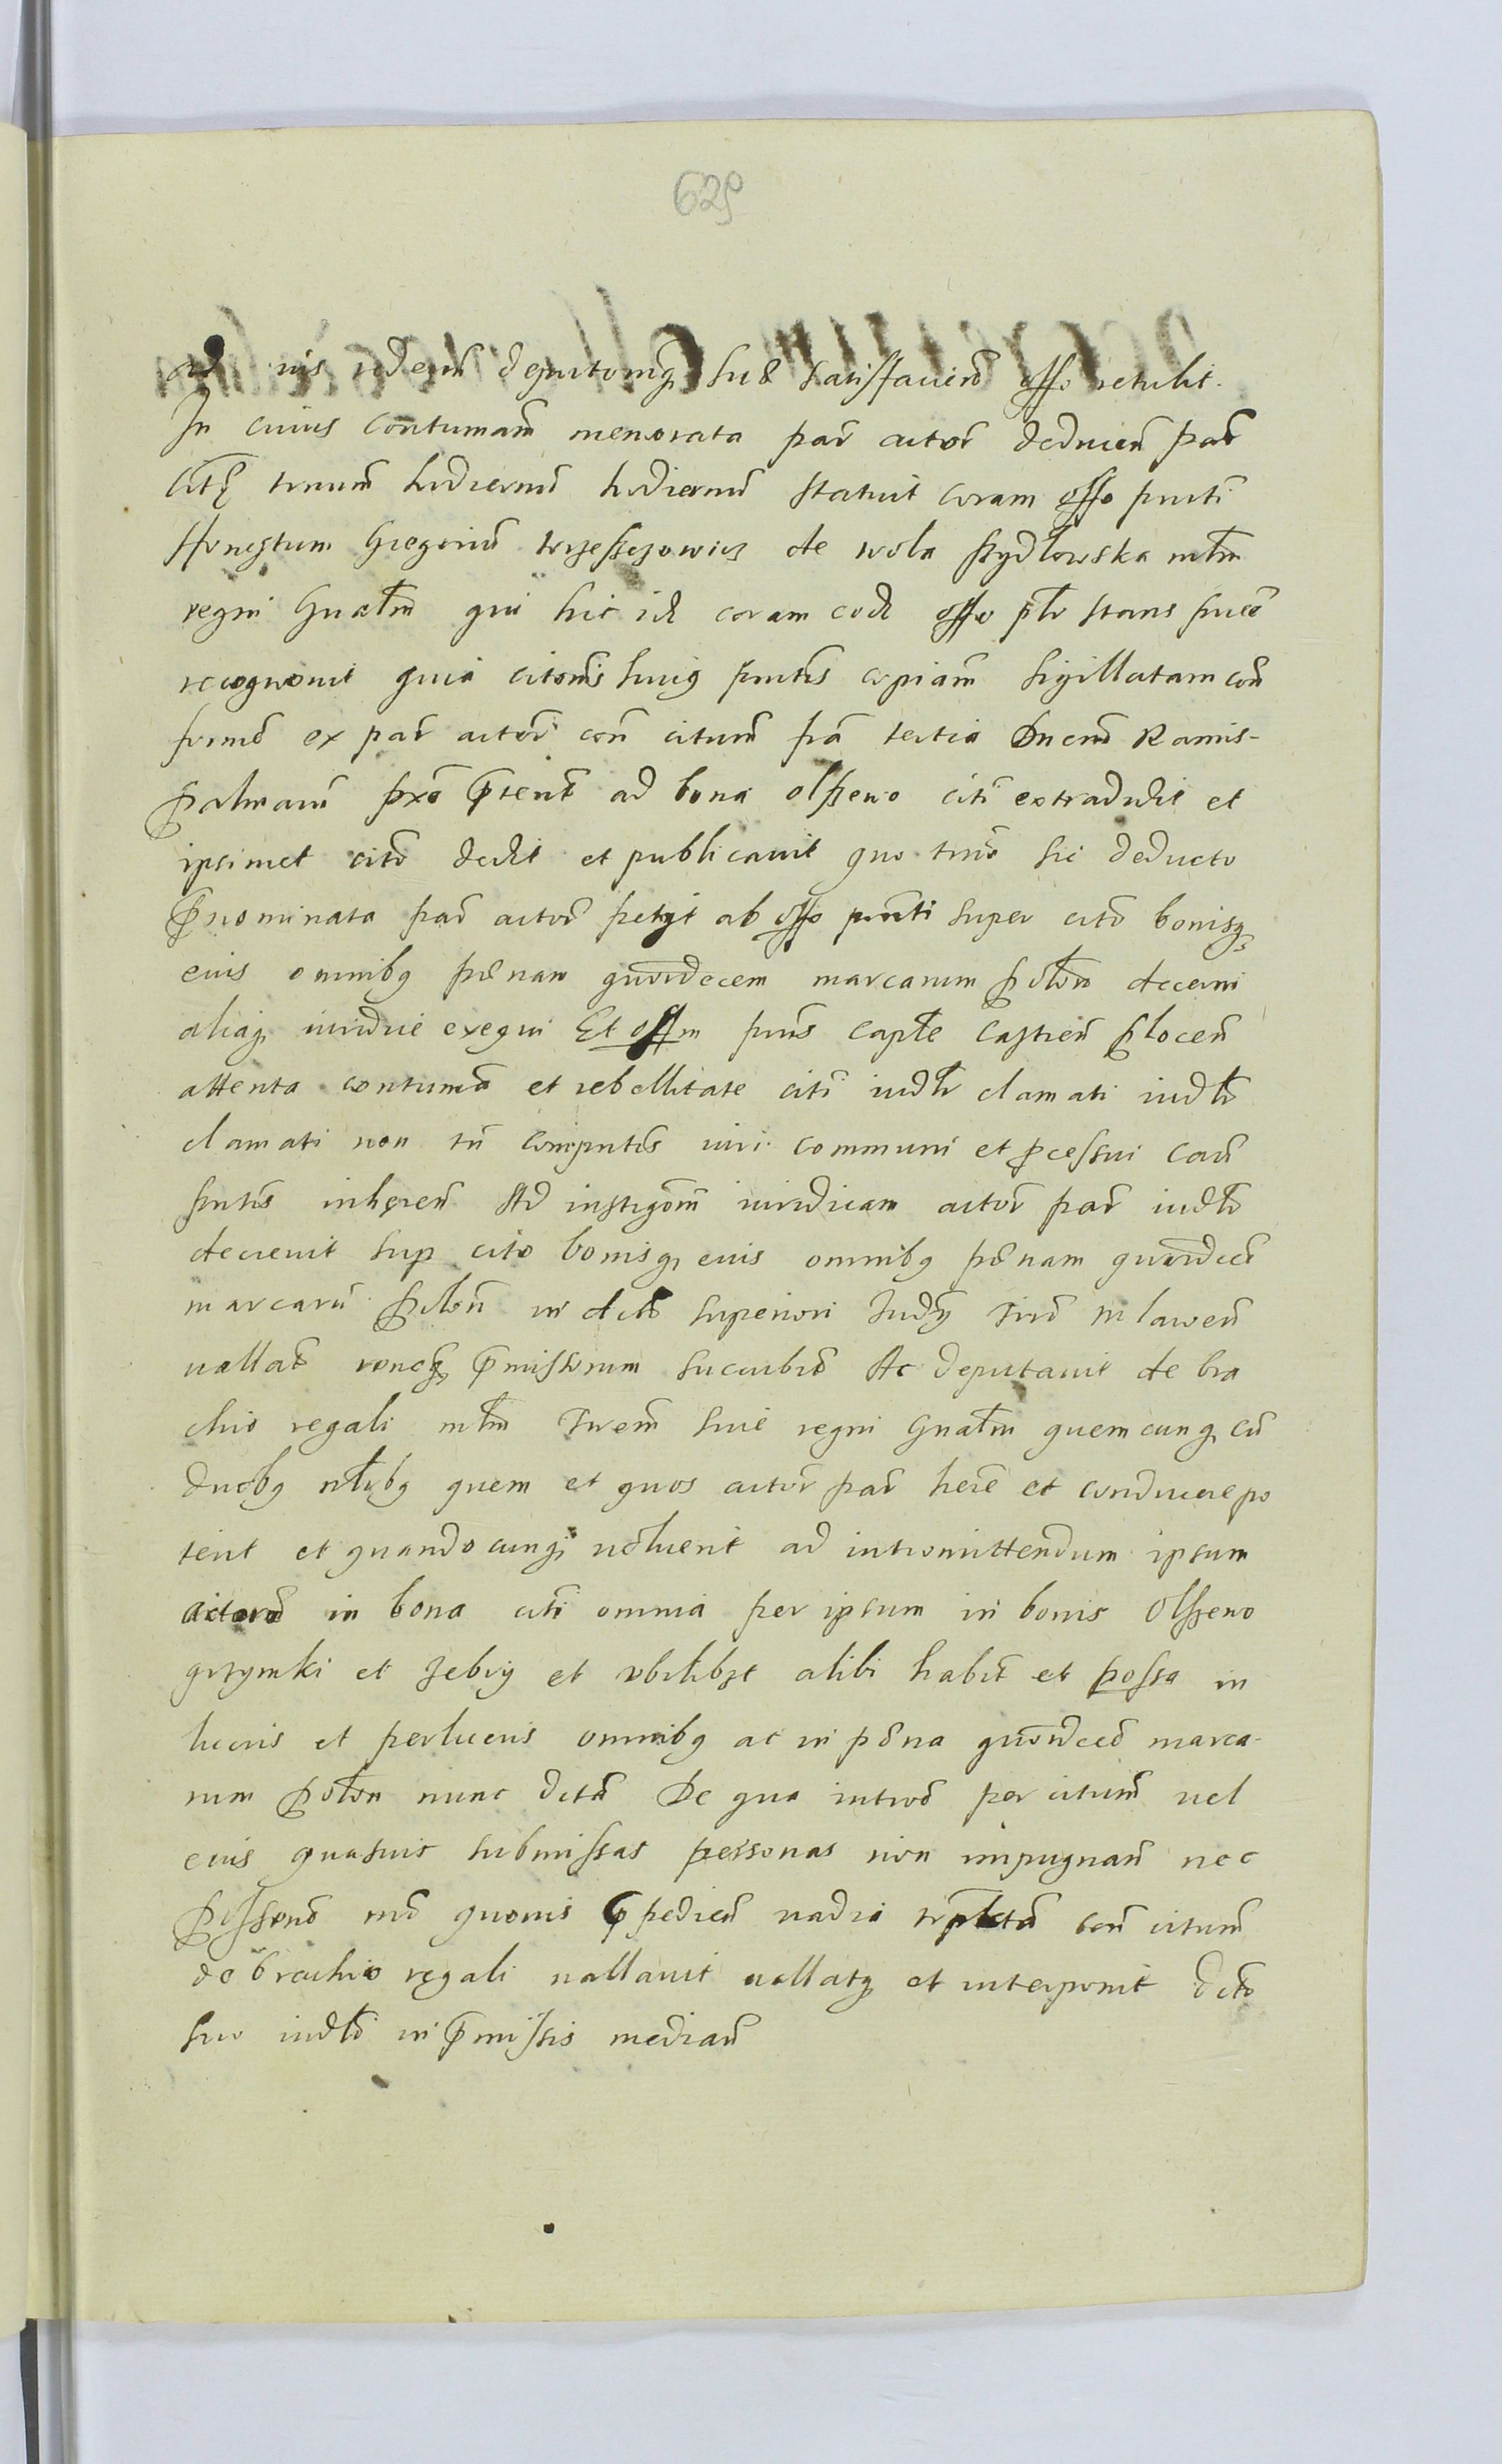 629
ad ius redeun deputoniq sue satisfaciens offo retulit.
In cuius contumam memorata pars actor deducen par
citę tmum hodiernũ hodiernũ statuit coram offo pnti
Honestum Gregoriũ wrzesczowicz de wola szydłowska młm
regni Gnałm qui hic id coram eod offo płr stans suẽ
recognovit quia citonis huiꝗ pntis copiam sigillatam con
formẽ ex par actor con citum fra tertia Dnem Ramis-
palmarũ pxe pterit ad bona olszewo citi extradidit et
ipsimet cito dedit et publicavit quo tmo sic deducto
Pnominata par actor petyt ab offo pnti super cito bonisq
eius omnibꝗ pœnam quordecem marcarum połon decerni
aliaq iuridice exequi Et offm pns capłe castren plocen
attenta contuma et rebellitate citi iudłr clamati iudłr
clamati non tñ computis iuri communi et pcessui cau
pntis inherẽn Ad instigõm iuridicam actor par iudłr
decrevit sup cito bonisq eius omnibꝗ pœnam quordecẽ
marcarũ połon in dcto superiori Judy Trri mlawen
vallat roneq pmissorum succubit Ac deputavit de bra
chio regali młm Trrem sive regni Gnałm quemcunq cũ
duobꝗ nłibꝗ quem et quos actor par here et conducere po
terit et quandocunq voluerit ad intromittendum ipsum
actorẽ in bona citi omnia per ipsum in bonis Olszewo
grzymki et zebry et ubilibet alibi habit et possa in
lucris et perlucris omnibꝗ ac in pœna quordecẽ marca-
rum połon nunc dcta De qua introm per citum vel
eius quasvis submissas personas non impugnan nec
possend mõ quovis p pedien vadia con citum
de brachio regali vallavit vallatq et interponit dcto
suo iudło in pmissis median